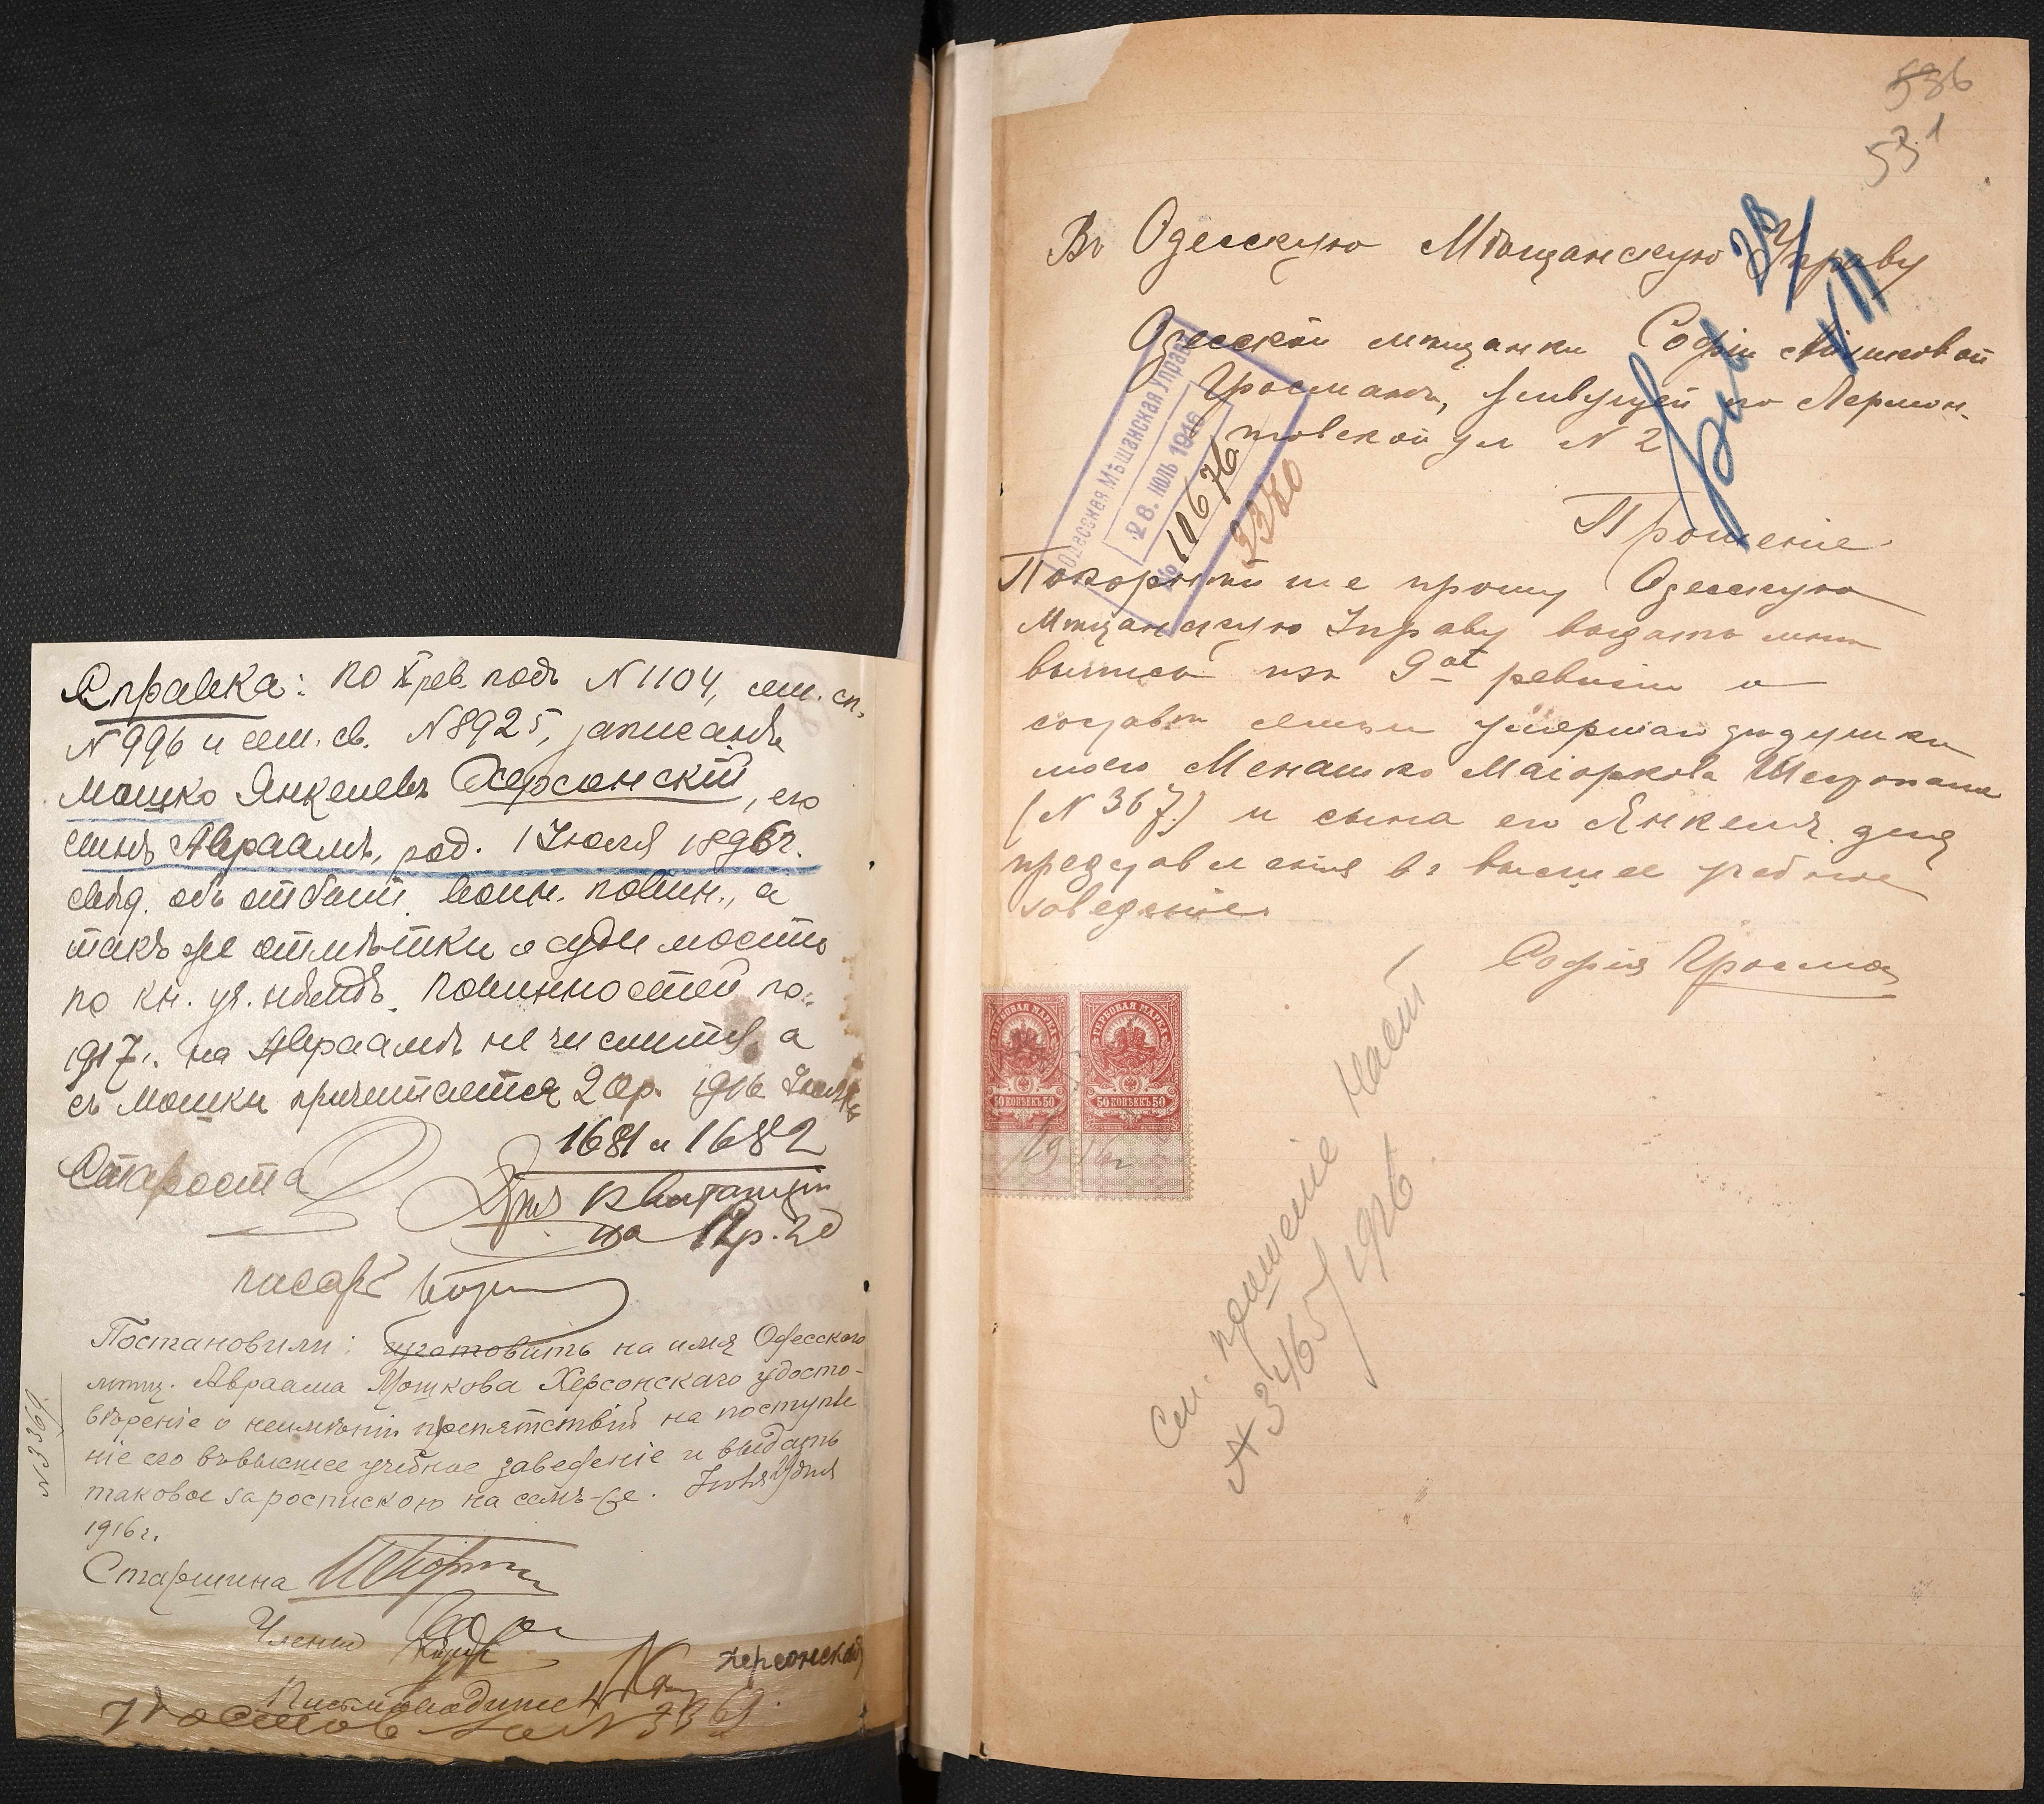 Справка: по X рев. подъ N 1104, сем. сп.
N 996 и сем. св. N 8925, записанъ
Мошко Янкелевъ Херсонскій, его
сынъ Авраамъ, род. 1 Июля 1896 г.
свѣд. объ отбыт. воин. повин., а
такъ же отмѣтки о судимости
по кн. уч. нѣтъ. повинностей по
1917 г. на Авраамѣ не числится, а
съ Мошки причитается 2 ор. 1916 Июля
1681 и 1682
Староста
Для квитанціи
на 12 р. 20
писарь
Постановили: изготовить на имя Одесскаго
мѣщ. Авраама Мошкова Херсонскаго удосто-
вѣреніе о неимѣніи препятствій на поступле
ніе его въ высшее учебное заведеніе и выдать
таковое за роспискою на семъ-же. Июля 29 дня
1916 г.
N 3369
Старшина
Члены
Письмоводитель
Херсонскій
Постанов N 3369.
536
531
Въ Одесскую Мѣщанскую Управу
28/VII
Одесской мѣщанки Софіи
Гросманъ, живущей по Лермон-
товской ул N 2
Одесская Мѣщанская Управа
28. ИЮЛЬ 1916
№ 10676
2380
Прошеніе
Покорнѣйше прошу Одесскую
Мѣщанскую Управу выдать мнѣ
выпись изъ 9ой ревизіи о
составѣ семьи умершаго дѣдушки
моего Менашко Маіоркова
(N 367.) и сына его Янкеля для
представленія въ высшее учебное
заведеніе.
Софія Гросман
ГЕРБОВАЯ МАРКА
50 КОПѢЕКЪ 50
ГЕРБОВАЯ МАРКА
50 КОПѢЕКЪ 50
1916 г
См. прошеніе
№ 3465/1916.